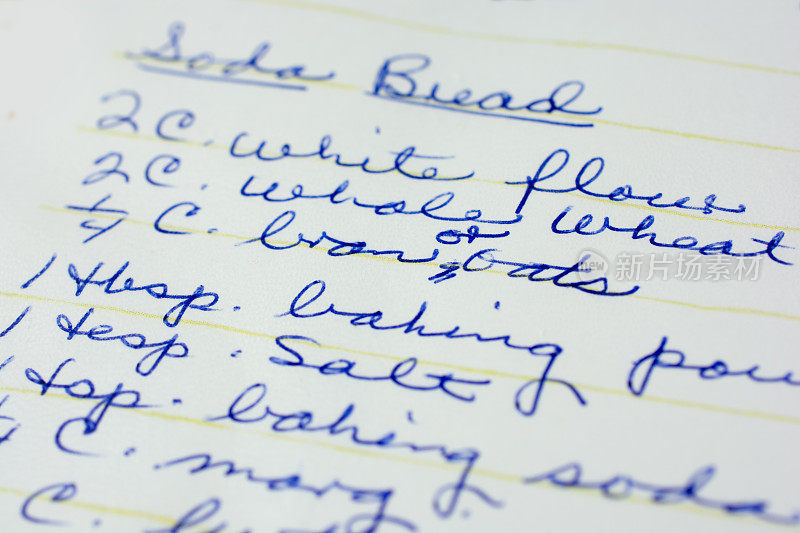 Soda Bread
2 C. white flour
2 C. whole wheat
1/4 C. bran or oats
1 tbsp. baking pow
1 tesp. Salt
1 tsp. baking soda
C. marg
C.
iStock 新国际视频